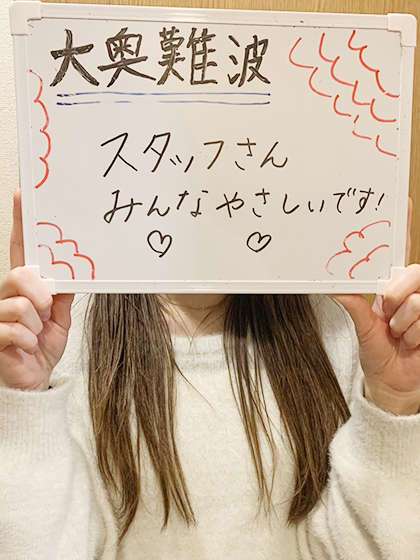 大奥難波
スタッフさん
みんなやさしいです!
♡ ♡